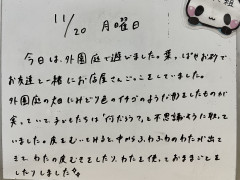 11/20 月曜日
今日は、外園庭で遊びました。葉っぱやお砂で
お友達と一緒にお店屋さんごっこをしていました。
外園庭の畑にみどり色のイチゴのような形をしたものが
実っていて、子どもたちは「何だろう？」と不思議そうに取って
いました。皮をむいてみると中からふわふわのわたが出て
きて、わたの皮むきをしたり、わたを使っておままごとを
したりしました。
組